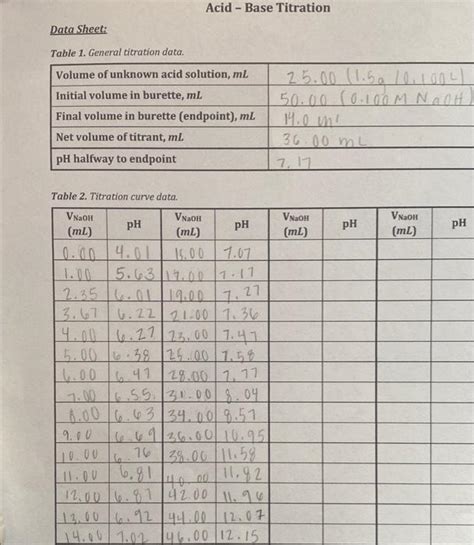 Acid – Base Titration
Data Sheet:
Table 1. General titration data.
Volume of unknown acid solution, mL 25.00 (1.5g/0.100L)
Initial volume in burette, mL 50.00 (0.100M NaOH)
Final volume in burette (endpoint), mL 14.0 ml
Net volume of titrant, mL 36.00 mL
pH halfway to endpoint 7.17
Table 2. Titration curve data.
VNaOH (mL) pH VNaOH (mL) pH VNaOH (mL) pH VNaOH (mL) pH
0.00 4.01 15.00 7.07
1.00 5.63 17.00 7.17
2.35 6.01 19.00 7.27
3.67 6.22 21.00 7.36
4.00 6.27 23.00 7.47
5.00 6.38 25.00 7.58
6.00 6.47 28.00 7.77
7.00 6.55 31.00 8.04
8.00 6.63 34.00 8.57
9.00 6.69 36.00 10.95
10.00 6.76 38.00 11.58
11.00 6.81 40.00 11.82
12.00 6.87 42.00 11.96
13.00 6.92 44.00 12.07
14.00 7.02 46.00 12.15